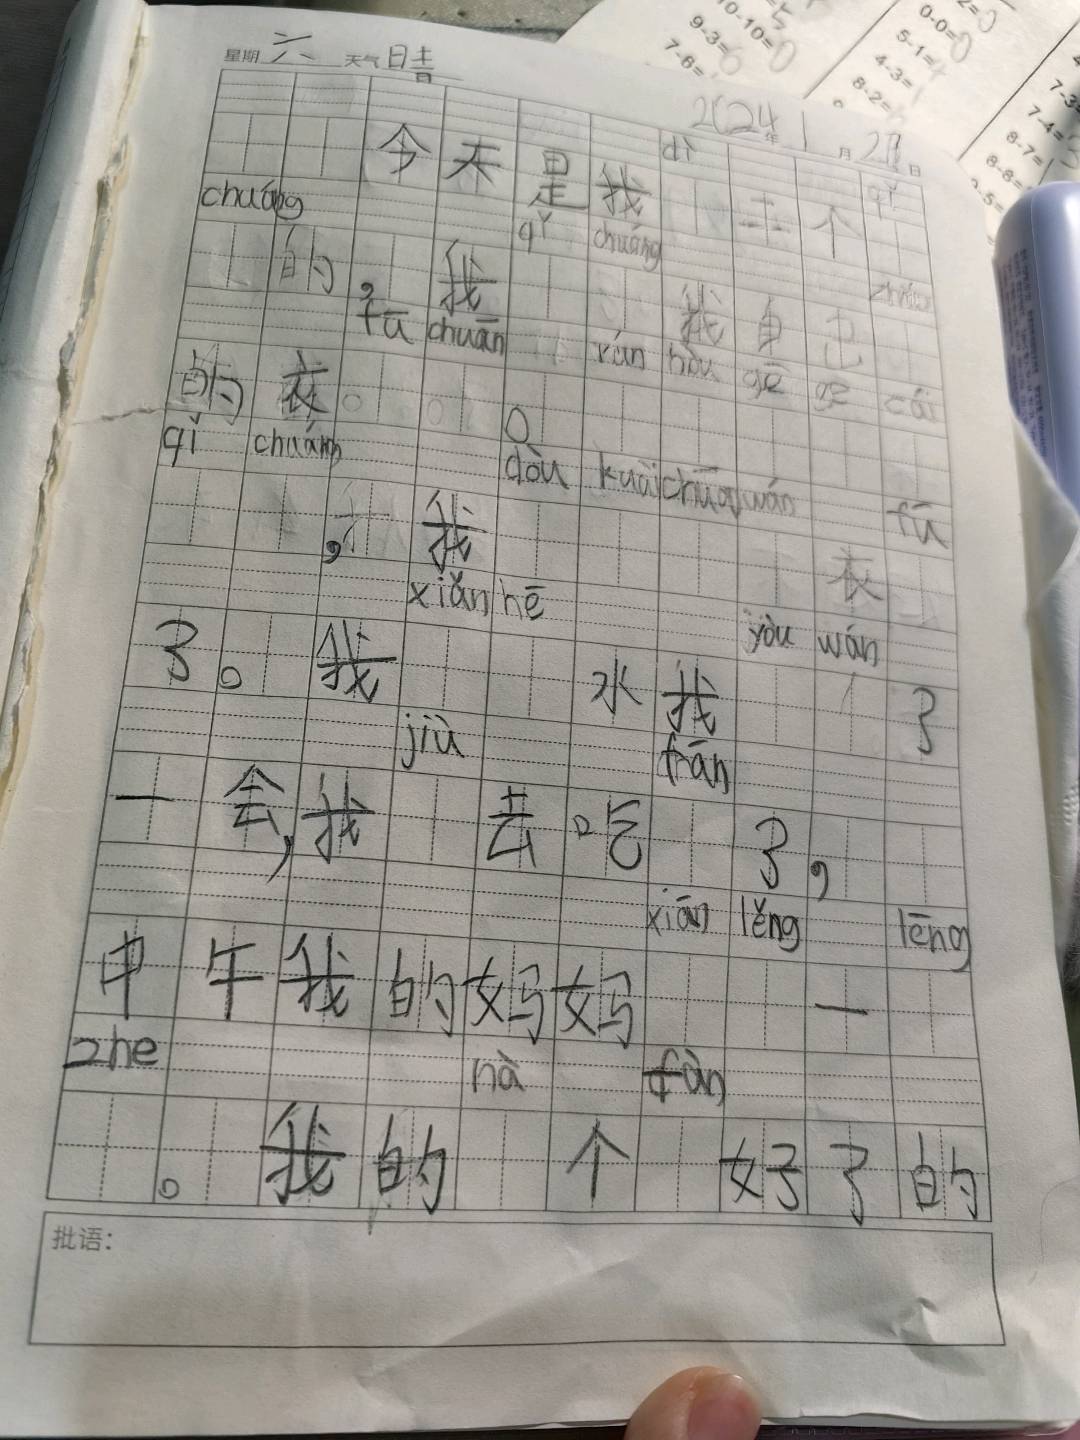 星期 六 天气 晴
2024年 1月 27日
dì qǐ
今天是我 主个
chuáng qǐ chuáng
的，我 我自已
fū chuān rán hòu gē ge cái
的衣。
qǐ chuáng dōu kuài chuān wán fū
，我 衣
xiān hē yòu wán
了。我 水我 了
jiù fàn
一会，我 去吃 了，
xiān lěng lēng
中午我的妈妈 一
zhe nà fàn
。我的 个 好了的
批语：
10-10=0
9-3=6
7-6=
0-0=0
5-1=
4-3=
8-2=
7-4=
8-7=